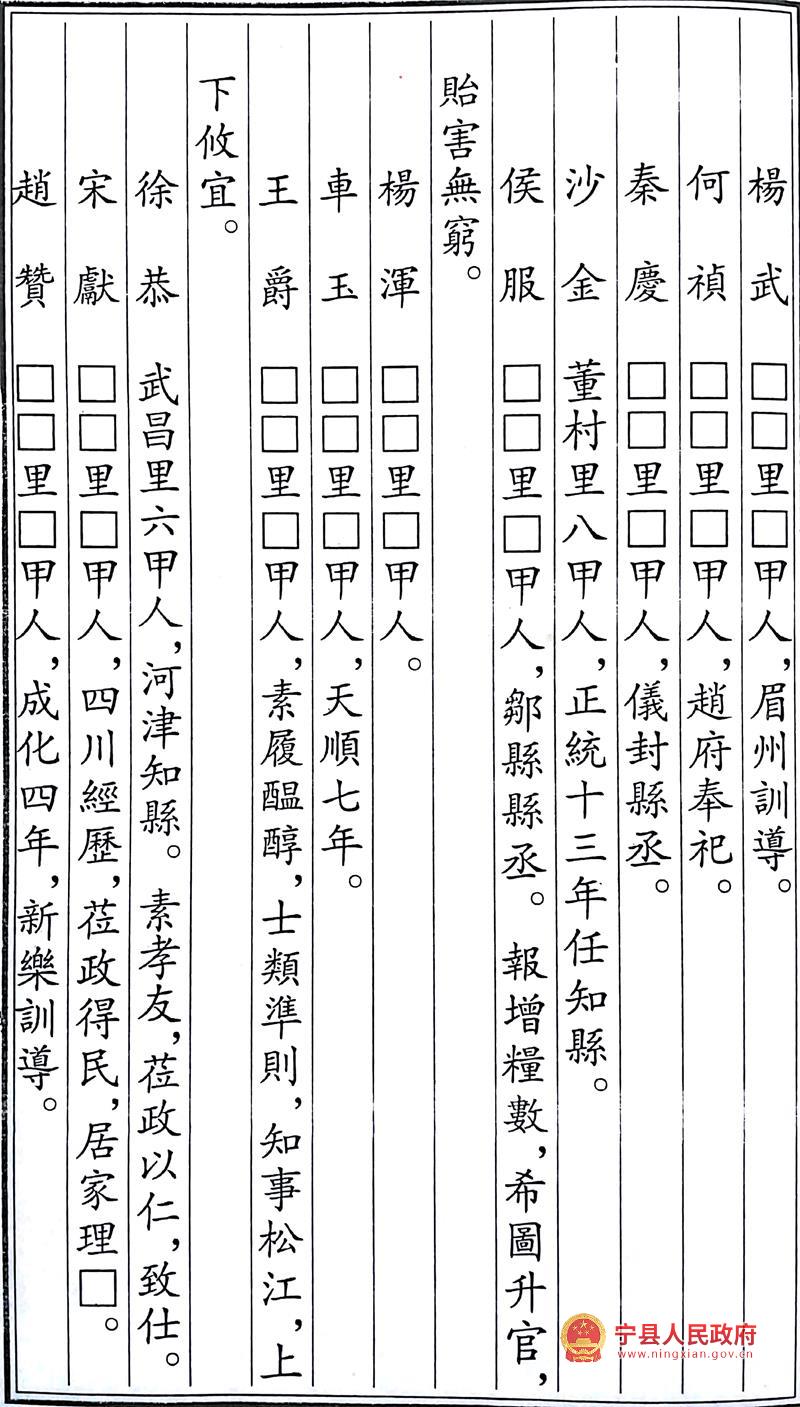 楊武 □□里□甲人，眉州訓導。
何禎 □□里□甲人，趙府奉祀。
秦慶 □□里□甲人，儀封縣丞。
沙金 董村里八甲人，正統十三年任知縣。
侯服 □□里□甲人，鄒縣縣丞。報增糧數，希圖升官，
貽害無窮。
楊渾 □□里□甲人。
車玉 □□里□甲人，天順七年。
王爵 □□里□甲人，素履醖醇，士類準則，知事松江，上
下攸宜。
徐恭 武昌里六甲人，河津知縣。素孝友，莅政以仁，致仕。
宋獻 □□里□甲人，四川經歷，莅政得民，居家理□。
趙贊 □□里□甲人，成化四年，新樂訓導。
宁县人民政府
www.ningxian.gov.cn